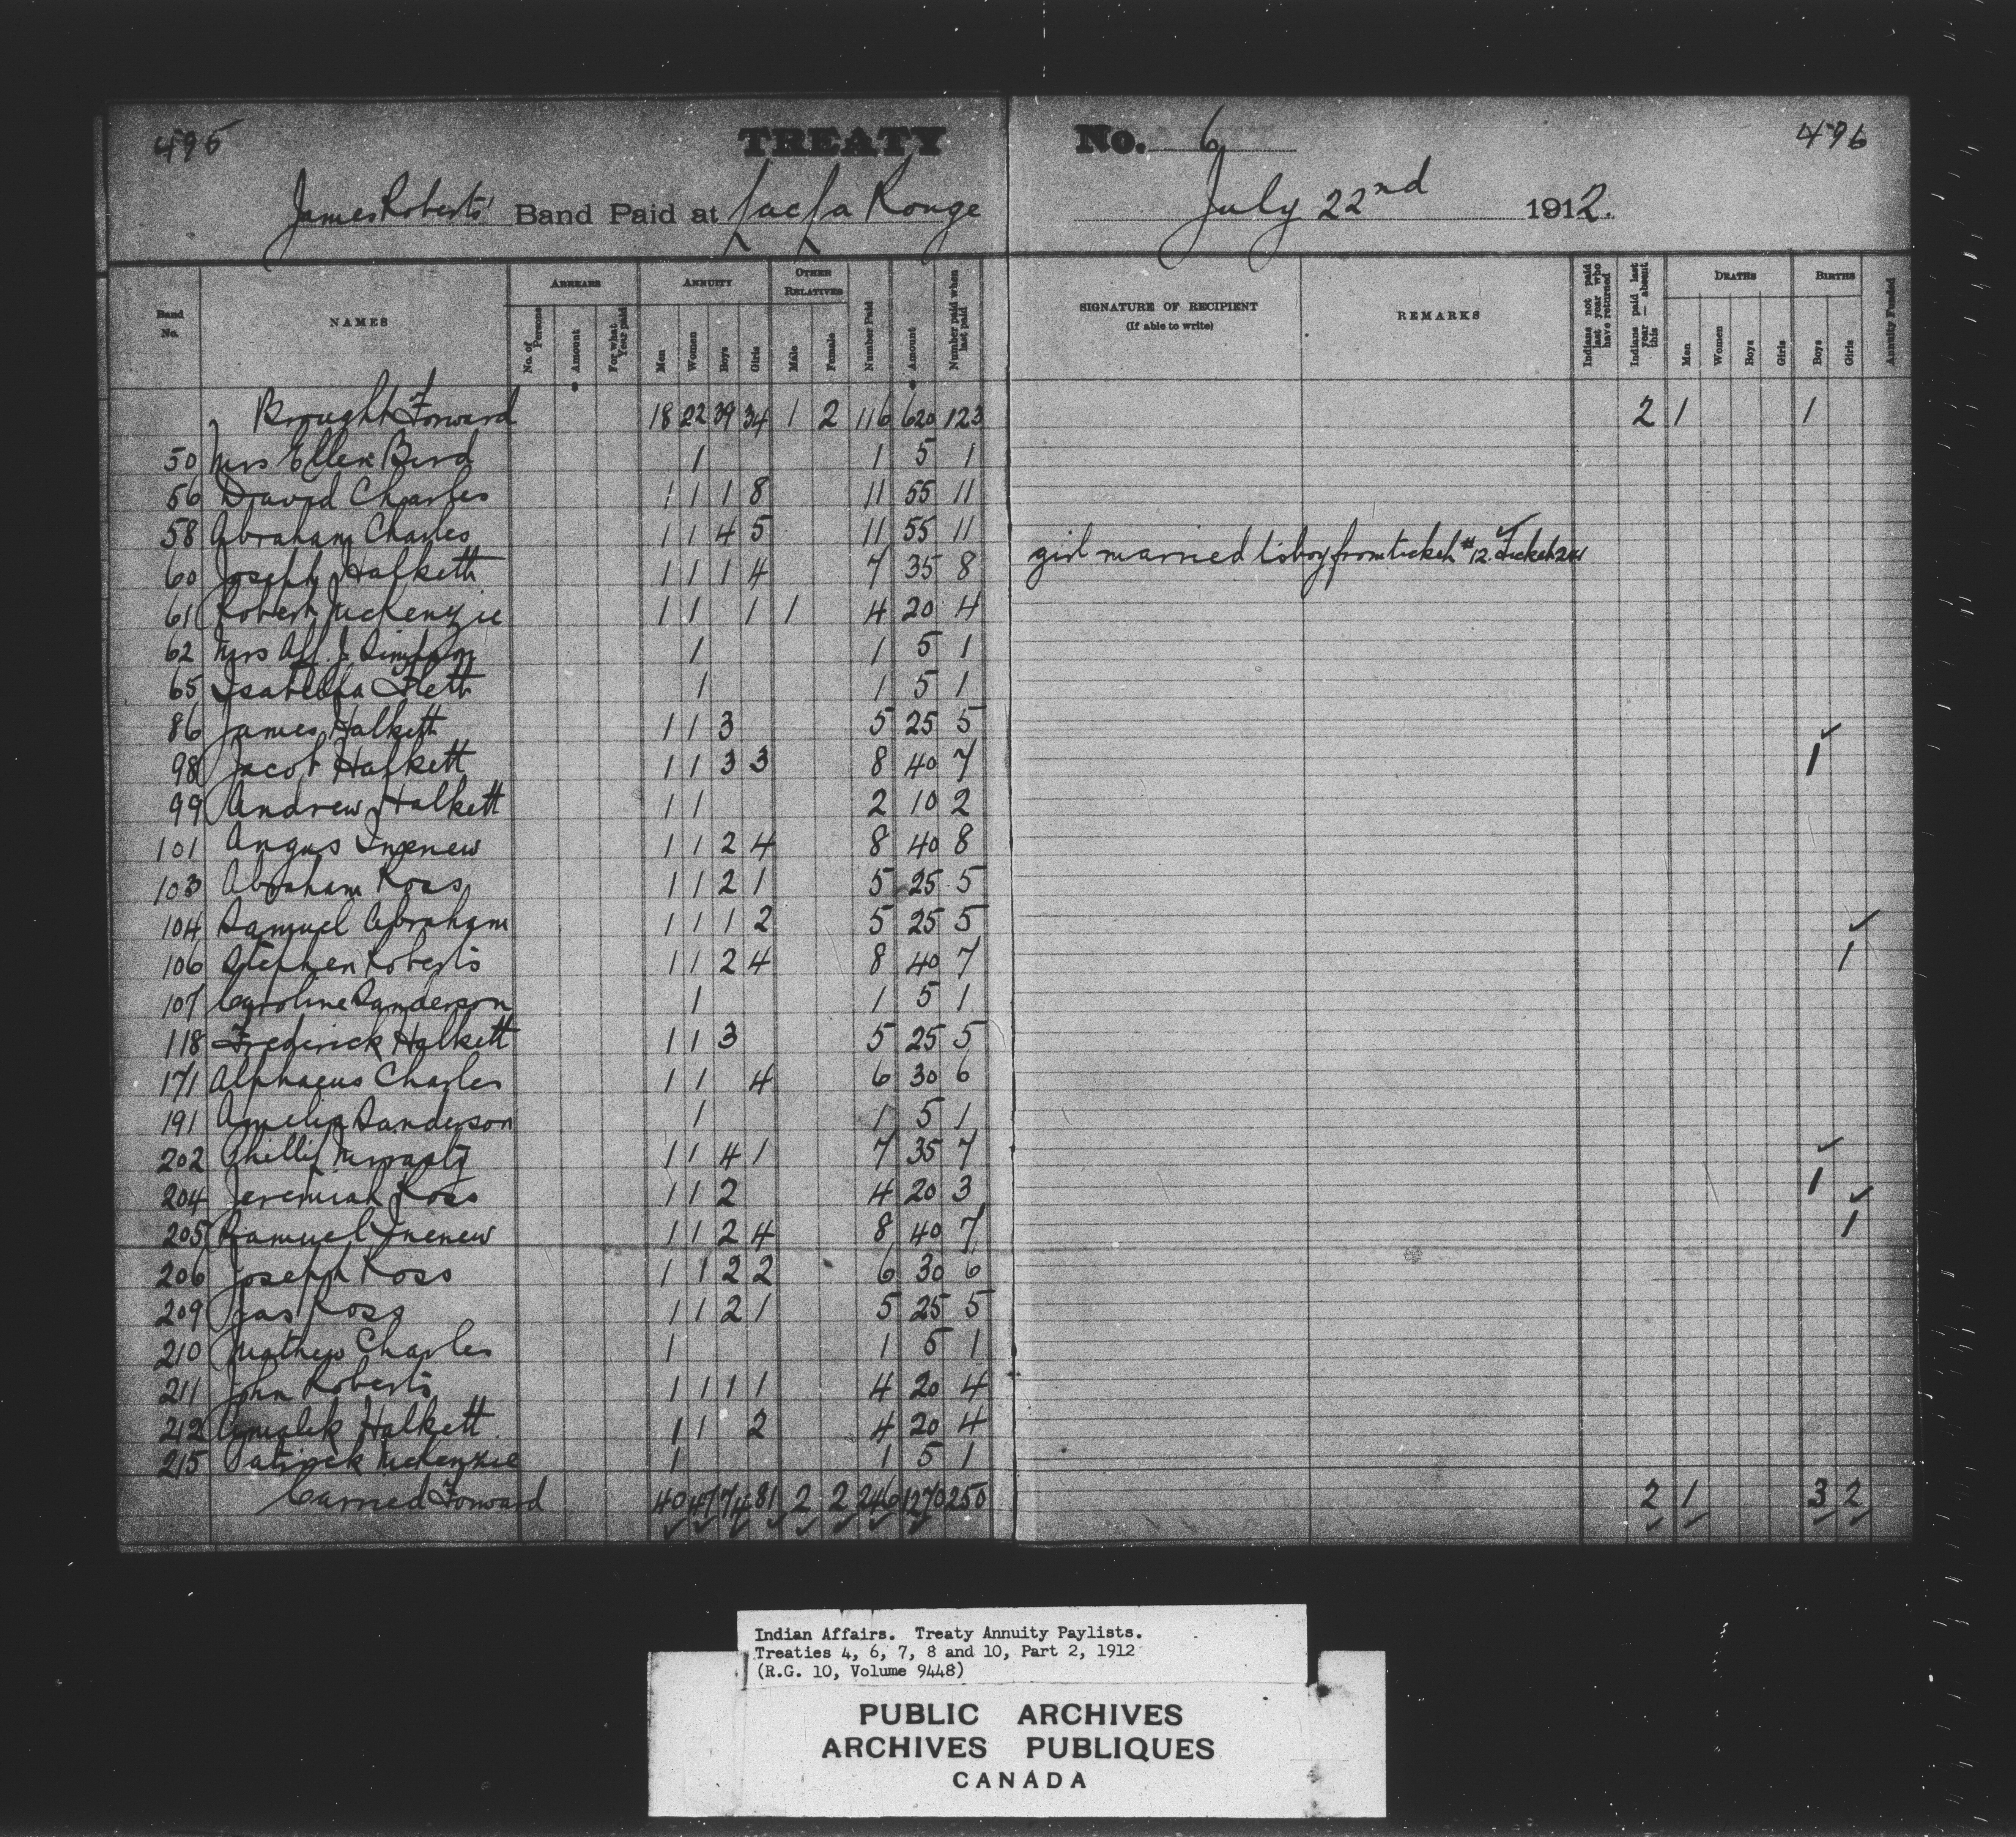 495 TREATY No. 6 496
James Roberts' Band Paid at Lac La Ronge July 22nd 1912.
Band No. NAMES ARREARS No. of Persons Amount For what Year paid ANNUITY Men Women Boys Girls OTHER RELATIVES Male Female Number Paid Amount Number paid when last paid SIGNATURE OF RECIPIENT (If able to write) REMARKS Indians not paid last year who have returned Indians paid last year — absent this DEATHS Men Women Boys Girls BIRTHS Boys Girls Annuity Funded
Brought Forward 18 22 39 34 1 2 116 620 123 2 1 1
50 Mrs Ellen Bird 1 1 5 1
56 David Charles 1 1 1 8 11 55 11
58 Abraham Charles 1 1 4 5 11 55 11
60 Joseph Halkett 1 1 1 4 7 35 8 girl married to boy from ticket #12. Ticket
61 Robert McKenzie 1 1 1 1 4 20 4
62 Mrs Alf. J. Simpson 1 1 5 1
65 Isabella Flett 1 1 5 1
86 James Halkett 1 1 3 5 25 5
98 Jacob Halkett 1 1 3 3 8 40 7 1
99 Andrew Halkett 1 1 2 10 2
101 Angus Inenew 1 1 2 4 8 40 8
103 Abraham Ross 1 1 2 1 5 25 5
104 Samuel Abraham 1 1 1 2 5 25 5
106 Stephen Roberts 1 1 2 4 8 40 7 1
107 Caroline Sanderson 1 1 5 1
118 Frederick Halkett 1 1 3 5 25 5
171 Alphaeus Charles 1 1 4 6 30 6
191 Amelia Sanderson 1 1 5 1
202 Phillip Mirasty 1 1 4 1 7 35 7
204 Jeremiah Ross 1 1 2 4 20 3 1
205 Samuel Inenew 1 1 2 4 8 40 7 1
206 Joseph Ross 1 1 2 2 6 30 6
209 Jas Ross 1 1 2 1 5 25 5
210 Mathew Charles 1 1 5 1
211 John Roberts 1 1 1 1 4 20 4
212 Amalek Halkett 1 1 2 4 20 4
215 Patrick McKenzie 1 1 5 1
Carried Forward 40 47 74 81 2 2 246 1270 250 2 1 3 2
Indian Affairs. Treaty Annuity Paylists.
Treaties 4, 6, 7, 8 and 10, Part 2, 1912
(R.G. 10, Volume 9448)
PUBLIC ARCHIVES
ARCHIVES PUBLIQUES
CANADA